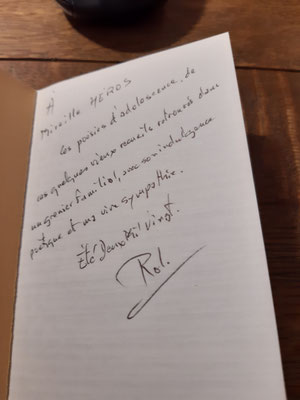 À
Mireille HEROS
Ces poésies d'adolescence, de
ces quelques vieux recueils retrouvés dans
un grenier familial, avec son indulgence
poétique et ma vive sympathie.
Été Deux Mil Vingt.
Rol.